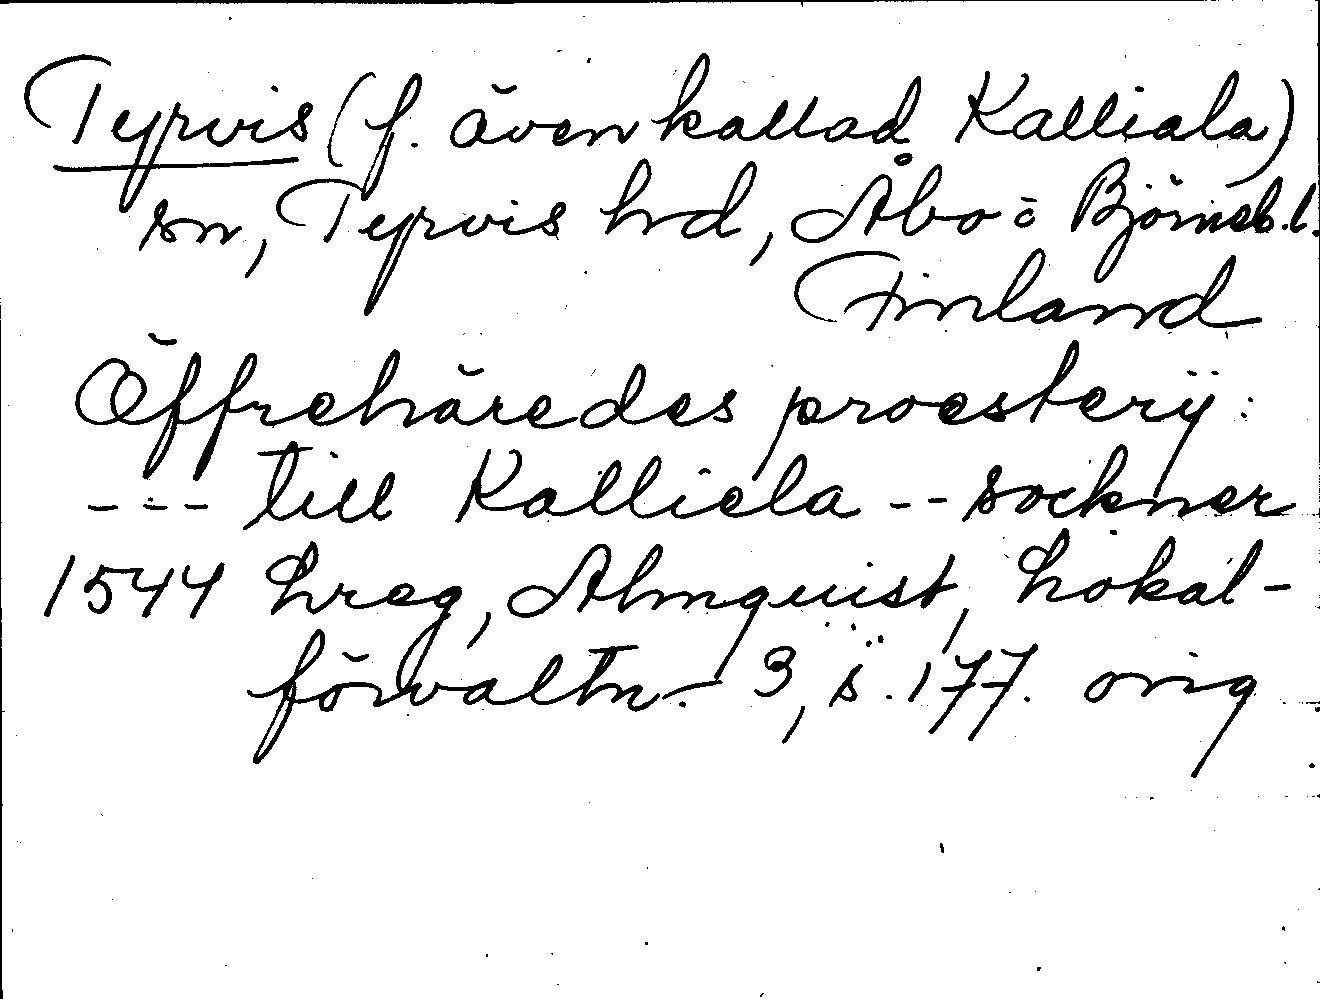 Tyrvis (f. även kallad Kalliala)
sn, Tyrvis hrd, Åbo o Björneb. l.
Finland
Öffrehäredes proestery:
--- till Kalliela -- sockner
1544 hreg, Almquist, Lokal-
förvaltn. 3, s. 177. orig